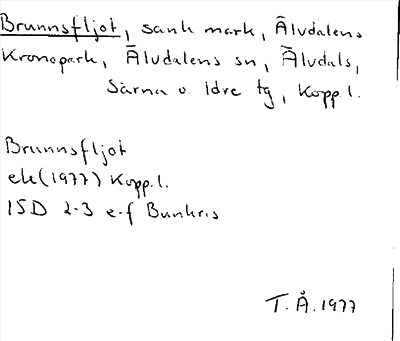 Brunnsfljot, sank mark, Älvdalens
Kronopark, Älvdalens sn, Älvdals,
Särna o. Idre tg, Kopp.l.
Brunnsfljot
ek(1977) Kopp.l.
15D 2-3 e-f Bunkris
T.Å.1977